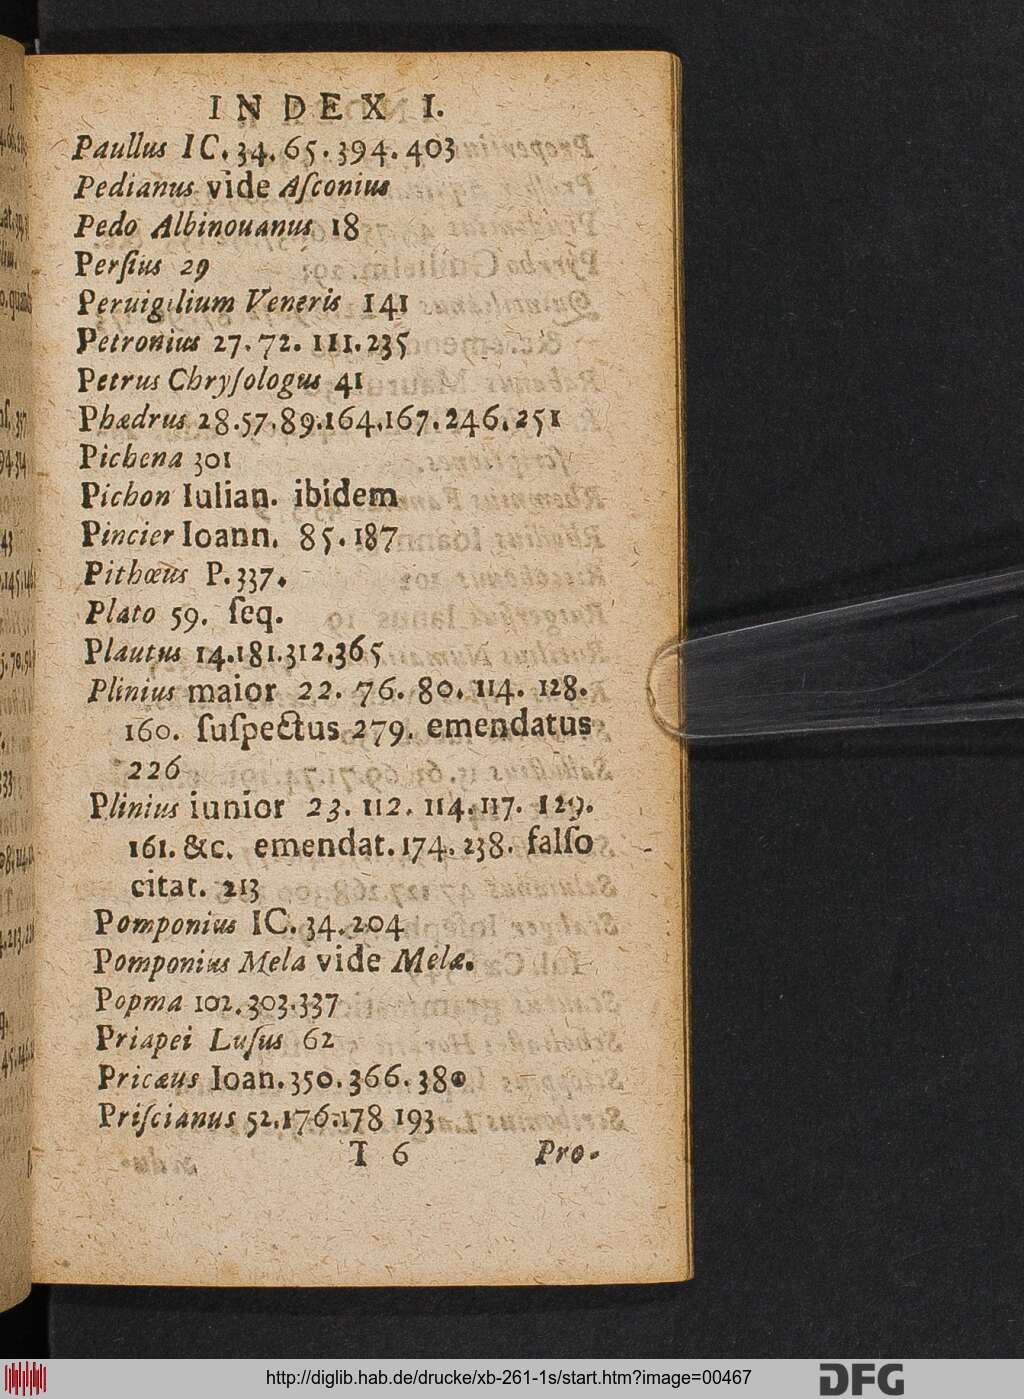 INDEX I.
Paullus IC. 34. 65. 394. 403
Pedianus vide Aſconius
Pedo Albinouanus 18
Perſius 29
Peruigilium Veneris 141
Petronius 27. 72. 111. 235
Petrus Chryſologus 41
Phædrus 28. 57. 89. 164. 167. 246. 251
Pichena 301
Pichon Iulian. ibidem
Pincier Ioann. 85. 187
Pithœus P. 337.
Plato 59. ſeq.
Plautus 14. 181. 312. 365
Plinius maior 22. 76. 80. 114. 128.
160. ſuſpectus 279. emendatus
226
Plinius iunior 23. 112. 114. 117. 129.
161. &c. emendat. 174. 238. falſo
citat. 213
Pomponius IC. 34. 204
Pomponius Mela vide Melæ.
Popma 102. 303. 337
Priapei Luſus 62
Pricæus Ioan. 350. 366. 380
Priſcianus 52. 176. 178 193
T 6 Pro-
http://diglib.hab.de/drucke/xb-261-1s/start.htm?image=00467
DFG